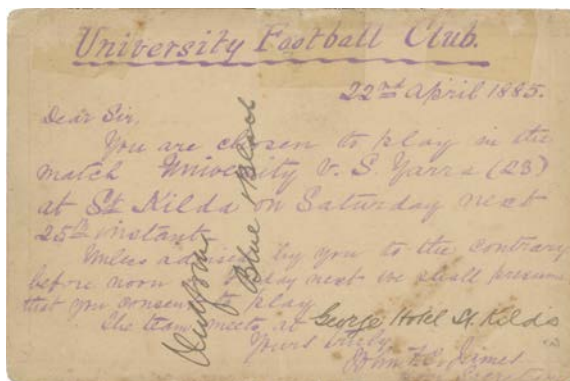 University Football Club.
22nd April 1885.
Dear Sir,
You are chosen to play in the
match University v. S. Yarra (23)
at St Kilda on Saturday next
25th instant
Unless advised by you to the contrary
before noon next we shall presume
that you consent to play
The team meets at George Hotel St. Kilda
Yours truly
James
Uniform
Blue & Black